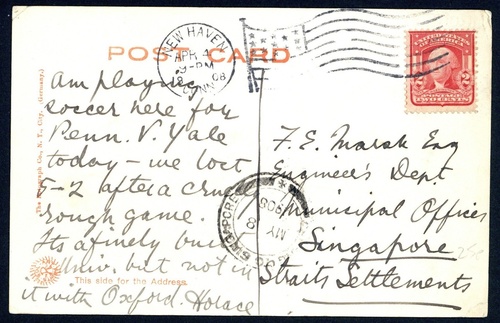 POST CARD
NEW HAVEN
APR 4
9-PM
1908
CONN.
POSTAGE
2 2
TWO CENTS
Am playing
soccer here for
Penn. V. Yale
today - we lost
5-2 after a cruel
rough game.
Its a finely built
Univ. but not in
it with Oxford. Horace
F. E. Marsh Esq
Engineer's Dept
Municipal Offices
Singapore
Straits Settlements
SINGAPORE
MY
8
1908
Co., N. Y. City. (Germany.)
This side for the Address.